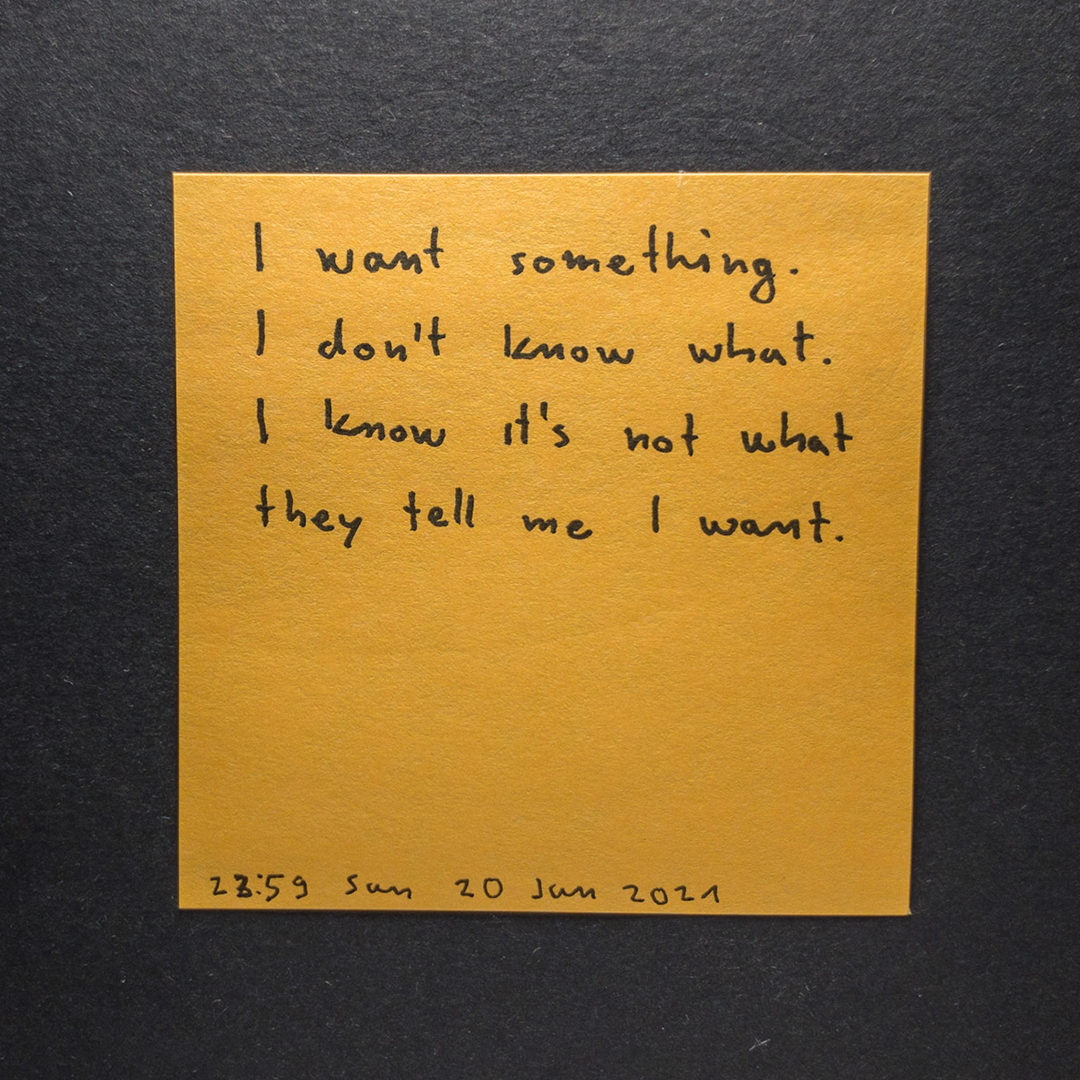 I want something.
I don't know what.
I know it's not what
they tell me I want.
23:59 Sun 20 Jun 2021